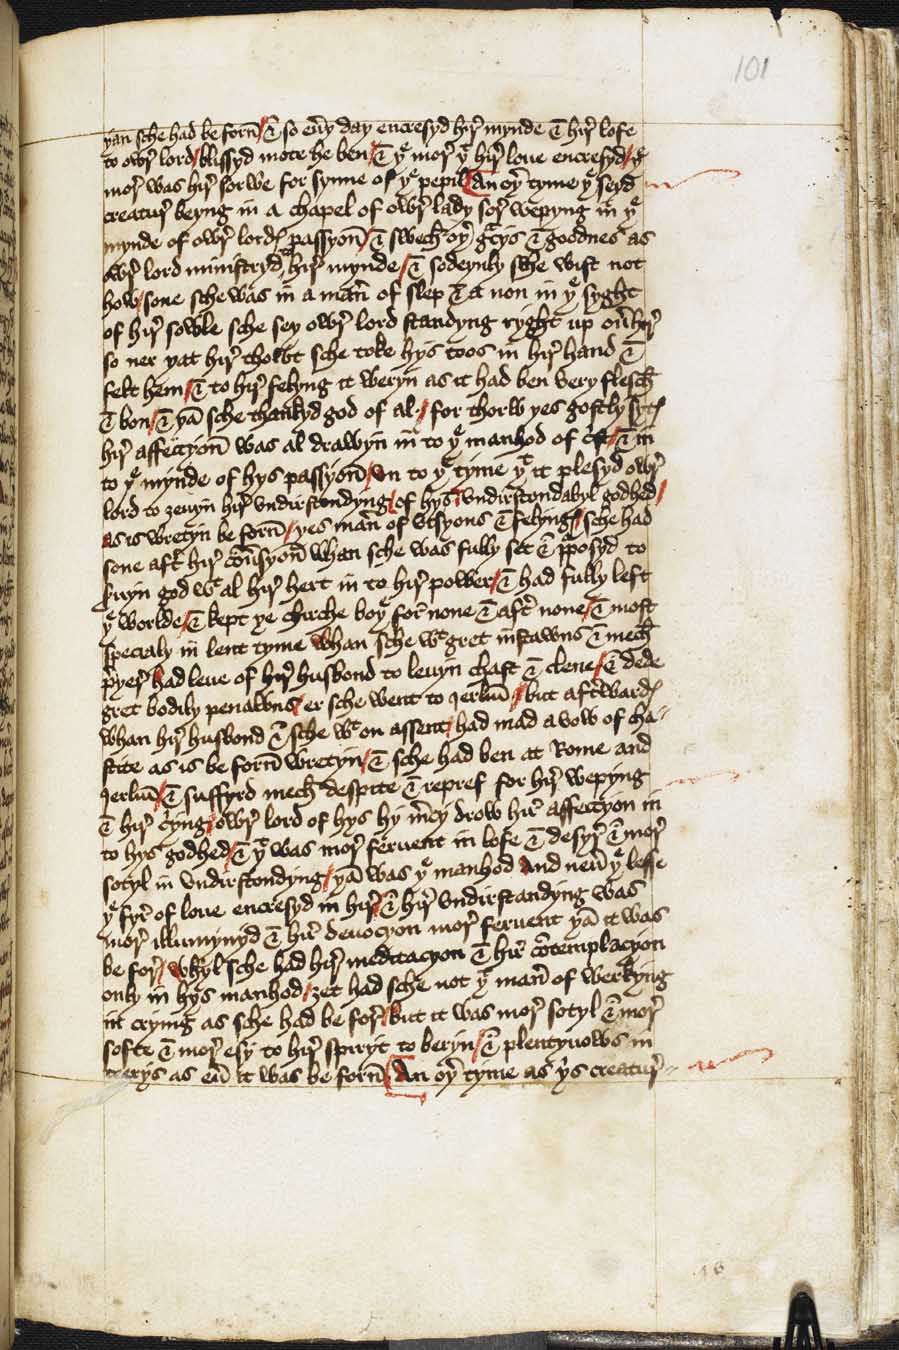 101
yan sche had be forn / & so eu͛y day encresyd hir mynde & hir lofe
to owr lord / blissyd mote he ben / & yᵉ mor yᵗ hir loue encresyd / yᵉ
mor was hir sorwe for synne of yᵉ pepil / An oy͛ tyme yᵉ seyd
creatur beyng in a chapel of owr lady sor wepyng in yᵉ
mynde of owr lordys passyon / & swech oy͛ gᵃcys & goodnes as
owr lord ministryd to hir mynde / & sodeynly sche wist not
how / sone sche was in a man͛ of slep & a non in yᵉ syght
of hir sowle sche sey owr lord standyng ryght up ou͛ hir
so ner yat hir thowt sche toke hys toos in hir hand &
felt hem / & to hir felyng it weryn as it had ben very flesch
& bon / & yā sche thankyd god of al / for thorw yes gostly sytys
hir affeccyon was al drawyn in to yᵉ manhod of c͛st / & in
to yᵉ mynde of hys passyon / vn to yᵉ tyme yᵗ it plesyd owr
lord to ȝeuyn hir vndirstondyng / of hys vndirstondabyl godhed /
as is wretyn be forn / yes man͛ of visyons & felyngys / sche had
sone aft͛ hir cōu͛syon whan sche was fully set & p͛posyd to
s͛uyn god wᵗ al hir hert in to hir power / & had fully left
yᵉ worlde / & kept ye chirche boyᵉ for none & aft͛ none / & most
specialy in lent tyme whan sche wᵗ gret instawns & mech
p͛yer had leue of hir husbond to leuyn chast & clene / & dede
gret bodily penawns / er sche went to ierlm̄ / but aft͛wardys
whan hir husbond & sche wᵗ on assent / had mad a vow of cha-
stite as is be forn wretyn / & sche had ben at Rome and
ierlm̄ / & suffyrd mech despite & repref for hir wepyng
& hir cryīg / owr lord of hys hy m͛cy drow hir affeccyon in
to hys godhed / & yᵗ was mor feruent in lofe & desyr & mor
sotyl in vndirstondyng / yā was yᵉ manhod And neu͛ yᵉ lesse
yᵉ fyr of loue encresyd in hir / & hir vndirstandyng was
mor illumynyd & hir deuocyon mor feruent yā it was
be for / whyl sche had hir meditacyon & hir cōtemplacyon
only in hys manhod / ȝet had sche not yᵗ man͛ of werkyng
in crying as sche had be for / but it was mor sotyl & mor
softe & mor esy to hir spiryt to beryn / & plentyuows in
terys as eu͛ it was be forn / An oy͛ tyme as yˢ creatur-